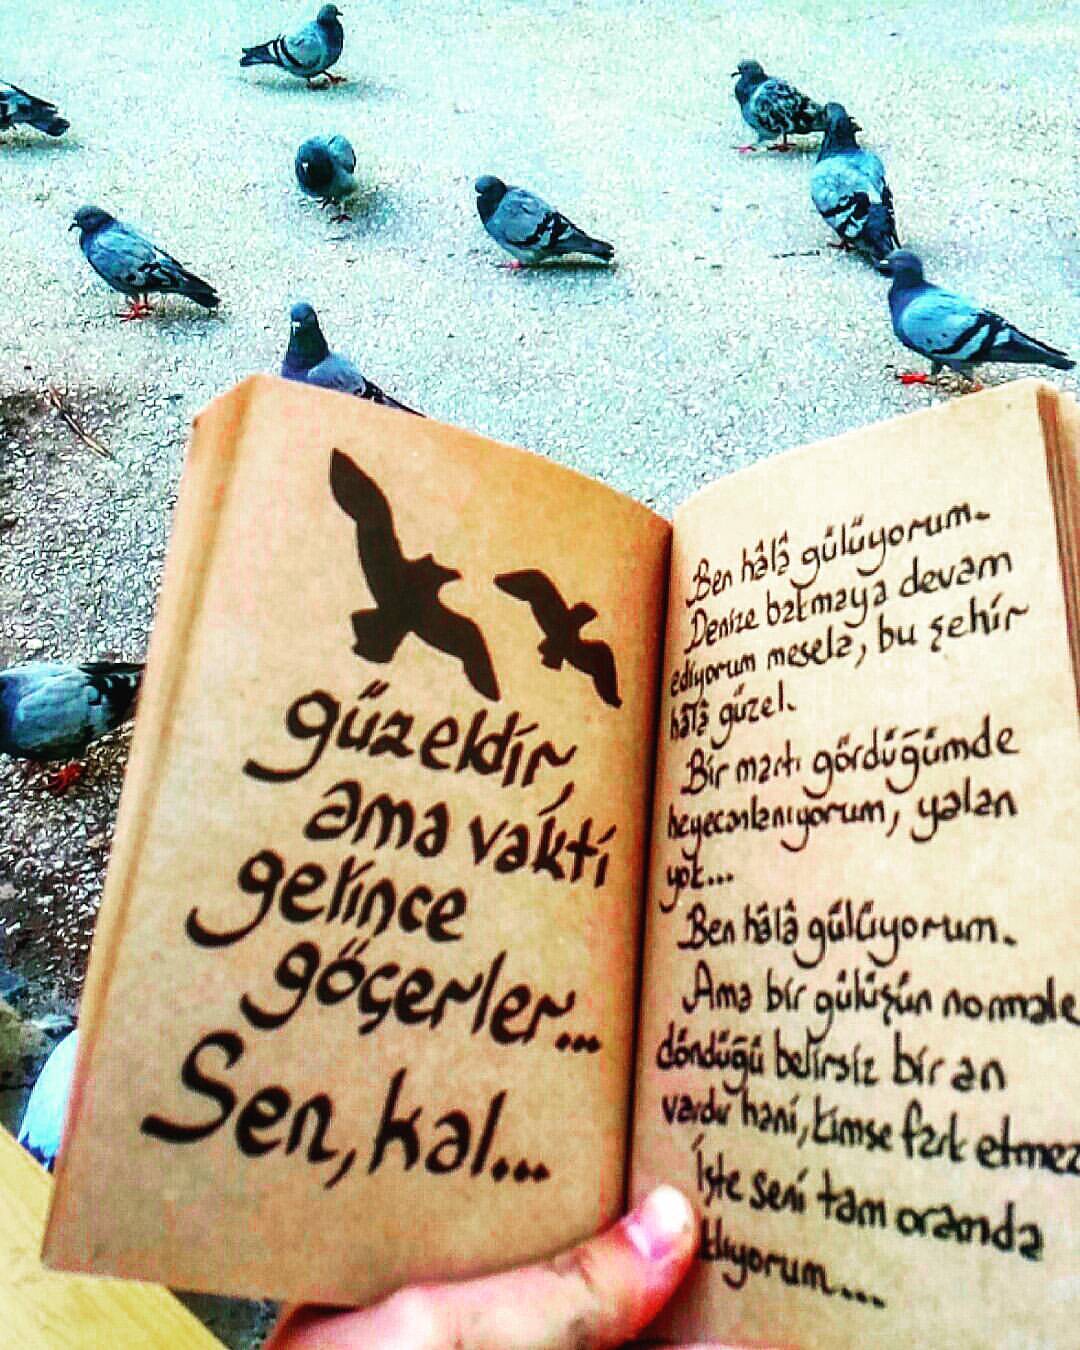 güzeldir,
ama vakti
gelince
göçerler...
Sen, kal...
Ben hâlâ gülüyorum.
Denize bakmaya devam
ediyorum mesela, bu şehir
hâlâ güzel.
Bir martı gördüğümde
heyecanlanıyorum, yalan
yok...
Ben hâlâ gülüyorum.
Ama bir gülüşün normale
döndüğü belirsiz bir an
vardır hani, kimse fark etmez
İşte seni tam oramda